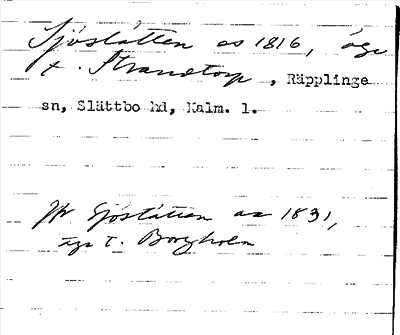 Sjöslätten as 1816, äga
t. Strandtorp, Räpplinge
sn, Slättbo hd, Kalm. l.
Hr Sjöslätten as 1831,
äga t. Borgholm